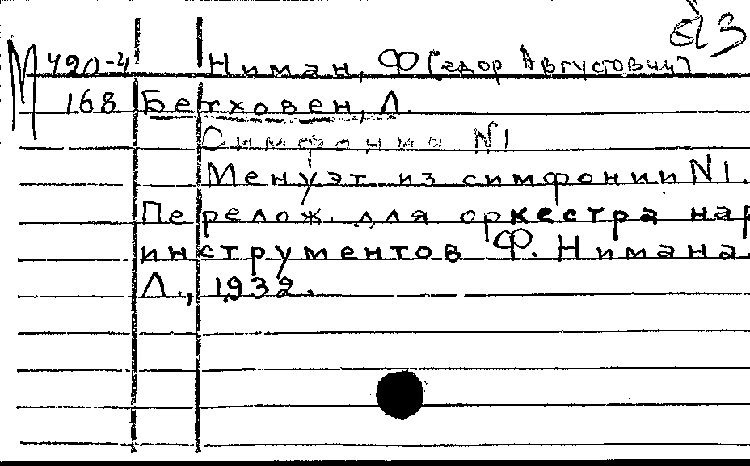 М 490-4 Ниман, Ф[едор Августович]
168 Бетховен, Л.
Симфония N1
Менуэт из симфонии N1.
Перелож. для оркестра нар
инструментов Ф. Нимана.
Л., 1932.